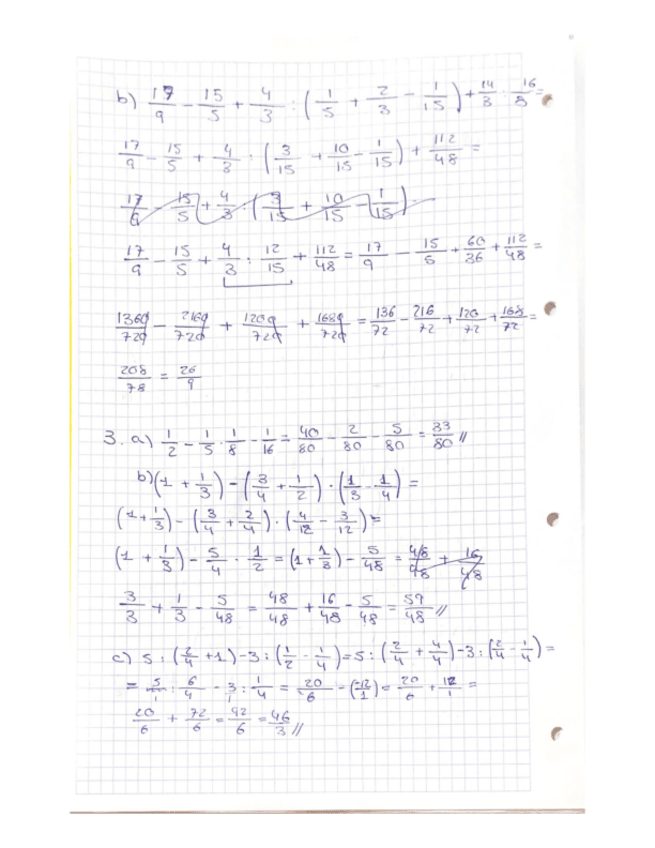 b) 17/9 - 15/5 + 4/3 : (1/5 + 2/3 - 1/15) + 14/3 : 16/8 =
17/9 - 15/5 + 4/3 : (3/15 + 10/15 - 1/15) + 112/48 =
17/9 - 15/5 + 4/3 : (3/15 + 10/15 - 1/15)
17/9 - 15/5 + 4/3 : 12/15 + 112/48 = 17/9 - 15/5 + 60/36 + 112/48 =
1360/720 - 2160/720 + 1200/720 + 1680/720 = 136/72 - 216/72 + 120/72 + 168/72 =
208/78 = 26/9
3. a) 1/2 - 1/5 · 1/8 - 1/16 = 40/80 - 2/80 - 5/80 = 33/80 //
b) (1 + 1/3) - (3/4 + 1/2) · (1/3 - 1/4) =
(1 + 1/3) - (3/4 + 2/4) · (4/12 - 3/12) =
(1 + 1/3) - 5/4 · 1/2 = (1 + 1/3) - 5/48 = 48/48 + 16/48
3/3 + 1/3 - 5/48 = 48/48 + 16/48 - 5/48 = 59/48 //
c) 5 : (2/4 + 1) - 3 : (1/2 - 1/4) = 5 : (2/4 + 4/4) - 3 : (2/4 - 1/4) =
= 5/1 : 6/4 - 3/1 : 1/4 = 20/6 - (-12/1) = 20/6 + 12/1 =
20/6 + 72/6 = 92/6 = 46/3 //